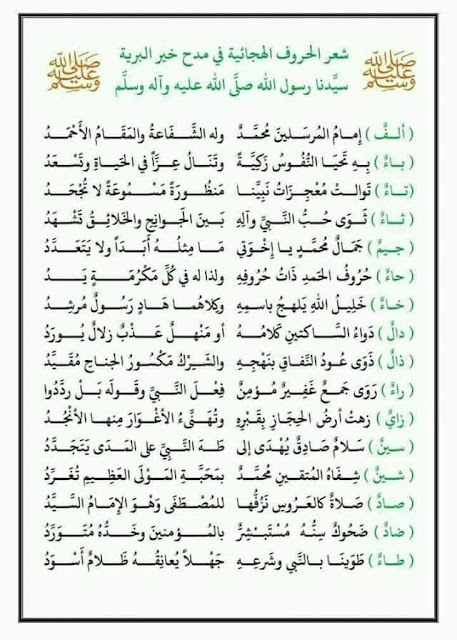 شعر الحروف الهجائية في مدح خير البرية
سيِّدنا رسول الله صلَّى الله عليه وآله وسلَّم
صلى الله عليه وسلم
صلى الله عليه وسلم
( ألـفٌ ) إمامُ المُرسَلينَ مُحمَّدٌ وله الشَّفاعةُ والمَقامُ الأَحْمَدُ
( باءٌ ) بِهِ تَحيَا النُّفُوسُ زَكِيَّةً وتَنَالُ عِزًّا في الحَياةِ وتَسْعَدُ
( تاءٌ ) تَوالتْ مُعْجِزاتُ نَبِيِّنا مَنظُورَةً مَسْمُوعَةً لا تُجْحَدُ
( ثاءٌ ) ثَوَى حُبُّ النَّبيِّ وآلِهِ بَينَ الجَوانِحِ والخَلائِقُ تَشْهَدُ
( جيمٌ ) جَمَالُ مُحمَّدٍ يا إخْوَتِي مَا مِثلُهُ أَبَدَاً ولا يَتَعَدَّدُ
( حاءٌ ) حُرُوفُ الحَمدِ ذَاتُ حُرُوفِهِ ولذا له في كُلِّ مَكْرُمَةٍ يَدُ
( خاءٌ ) خَلِيلُ اللهِ يَلهجُ باسمِهِ وكلاهُما هَادٍ رَسُولٌ مُرشِدُ
( دالٌ ) دَواءُ السَّاكتينَ كَلامُهُ أو مَنْهلٌ عَذْبٌ زلالٌ يُورَدُ
( ذالٌ ) ذَوَى عُودُ النِّفاقِ بِنَهْجِهِ والشِّركُ مَكْسُورُ الجناحِ مُقيَّدُ
( راءٌ ) رَوَى جَمعٌ غَفِيرٌ مُؤمِنٌ فِعْلَ النَّبيِّ وقَولَه بَلْ ردَّدُوا
( زايٌ ) زهتْ أرضُ الحِجَازِ بِقَبْرِهِ وتُهنِّئُ الأغْوَارَ مِنها الأَنْجُدُ
( سينٌ ) سَلامٌ صَادِقٌ يُهْدَى إلى طَهَ النَّبيِّ على المَدَى يَتَجَدَّدُ
( شينٌ ) شِفاهُ المُتقينَ مُحمَّدٌ بمَحبَّةِ المَوْلَى العَظِيمِ تُغَرِّدُ
( صادٌ ) صَلاةٌ كالعَروسِ نَزُفُّها للمُصْطَفَى وَهوَ الإمَامُ السَّيِّدُ
( ضادٌ ) ضَحُوكٌ سِنُّهُ مُسْتَبشِرٌ بالمُؤمنينَ وخَدُّه مُتَورِّدُ
( طاءٌ ) طَوَينَا بالنَّبي وشَرعِهِ جَهْلَاً يُعانِقُهُ ظَلامٌ أَسْوَدُ